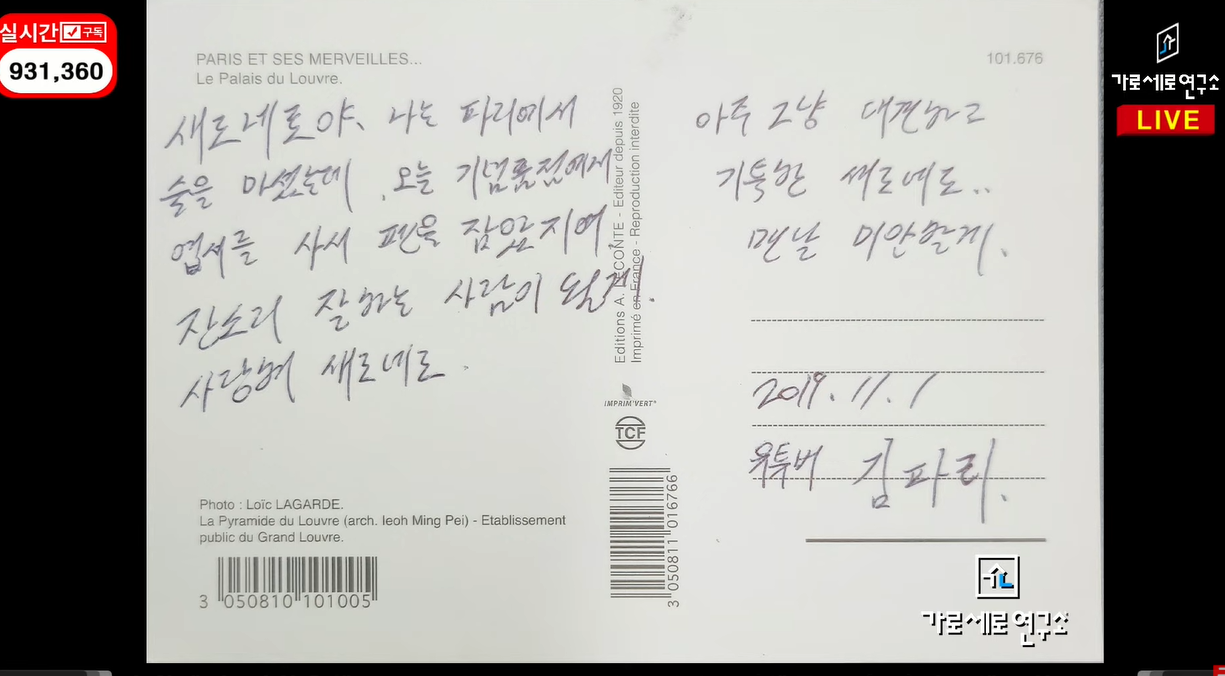 실시간 구독
931,360
PARIS ET SES MERVEILLES...
Le Palais du Louvre.
101.676
가로세로연구소
LIVE
새로네로야. 나는 파리에서
술을 마셨는데. 오늘 기념품점에서
엽서를 사서 펜을 잡았지여
잔소리 잘하는 사람이 될게.
사랑해 새로네로.
Editions A. LECONTE - Editeur depuis 1920
Imprimé en France - Reproduction interdite
아주 그냥 대견하고
기특한 새로네로..
맨날 미안할게.
IMPRIM'VERT®
TCF
2019. 11. 1
유투버 김파리.
Photo : Loïc LAGARDE.
La Pyramide du Louvre (arch. Ieoh Ming Pei) - Etablissement
public du Grand Louvre.
3 050810 101005
3 050811 016766
가로세로연구소